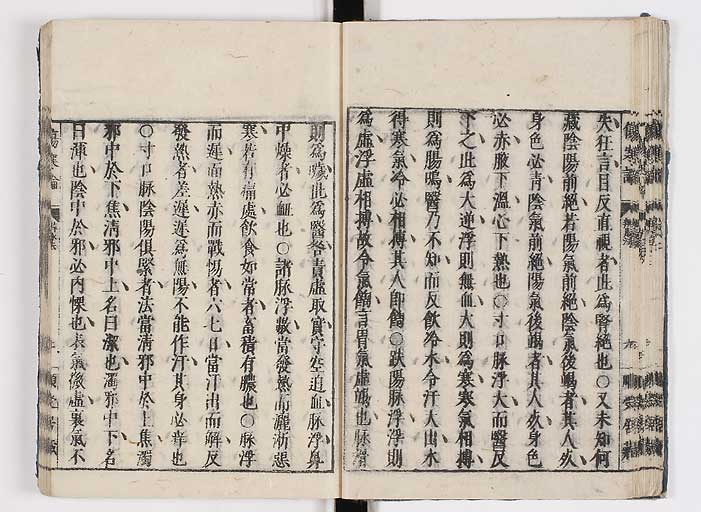 失狂言目反直視者此爲腎絶也〇又未知何
藏陰陽前絶若陽氣前絶陰氣後竭者其人死
身色必靑陰氣前絶陽氣後竭者其人死身色
必赤腋下溫心下熱也〇寸口脉浮大而醫反
下之此爲大逆浮則無血大則爲寒寒氣相搏
則爲腸鳴醫乃不知而反飮冷水令汗大出水
得寒氣冷必相搏其人卽𩚬〇趺陽脉浮浮則
爲虛浮虛相搏故令氣𩚬言胃氣虛竭也脉滑
則爲噦此爲醫咎責虛取實守空迫血脉浮鼻
中燥者必衄也〇諸脉浮數當發熱而灑淅惡
寒若有痛處飮食如常者畜積有膿也〇脉浮
而遲面熱赤而戰惕者六七日當汗出而解反
發熱者差遲遲爲無陽不能作汗其身必痒也
〇寸口脉陰陽俱緊者法當淸邪中於上焦濁
邪中於下焦淸邪中上名曰潔也濁邪中下名
曰渾也陰中於邪必內慄也表氣微虛裏氣不
傷寒論